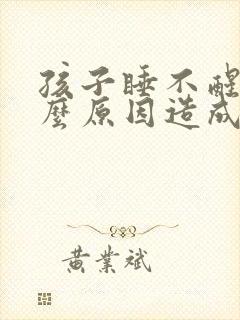 孩子睡不醒
麼原因造成
黃業斌